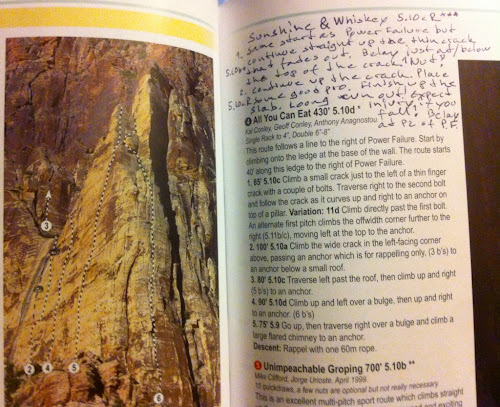 Sunshine & Whiskey 5.10c R ***
1. Same start as Power Failure but
continue straight up the thin crack
5.10 that fades out. Belay just at/below
the top of the crack. "Nuts"
2. Continue up the crack. Place
5.10c R some good pro. Finish up the
slab. Loong runout! Expect
injury if you
fall. Belay
at P2 of P.F.
4 All You Can Eat 430' 5.10d *
Kal Conley, Geoff Conley, Anthony Anagnostou
Single Rack to 4", Double 6"-8"
This route follows a line to the right of Power Failure. Start by
climbing onto the ledge at the base of the wall. The route starts
40' along this ledge to the right of Power Failure.
1. 65' 5.10c Climb a small crack just to the left of a thin finger
crack with a couple of bolts. Traverse right to the second bolt
and follow the crack as it curves up and right to an anchor on
top of a pillar. Variation: 11d Climb directly past the first bolt.
An alternate first pitch climbs the offwidth corner further to the
right (5.11b/c), moving left at the top to the anchor.
2. 100' 5.10a Climb the wide crack in the left-facing corner
above, passing an anchor which is for rappelling only, (3 b's) to
an anchor below a small roof.
3. 80' 5.10c Traverse left past the roof, then climb up and right
(5 b's) to an anchor.
4. 90' 5.10d Climb up and left over a bulge, then up and right
to an anchor. (6 b's)
5. 75' 5.9 Go up, then traverse right over a bulge and climb a
large flared chimney to an anchor.
Descent: Rappel with one 60m rope.
5 Unimpeachable Groping 700' 5.10b **
Mike Clifford, Jorge Urioste, April 1999.
10 quickdraws, a few nuts are optional but not really necessary
This is an excellent multi-pitch sport route which climbs straight
and exciting
3
2
4
5
6